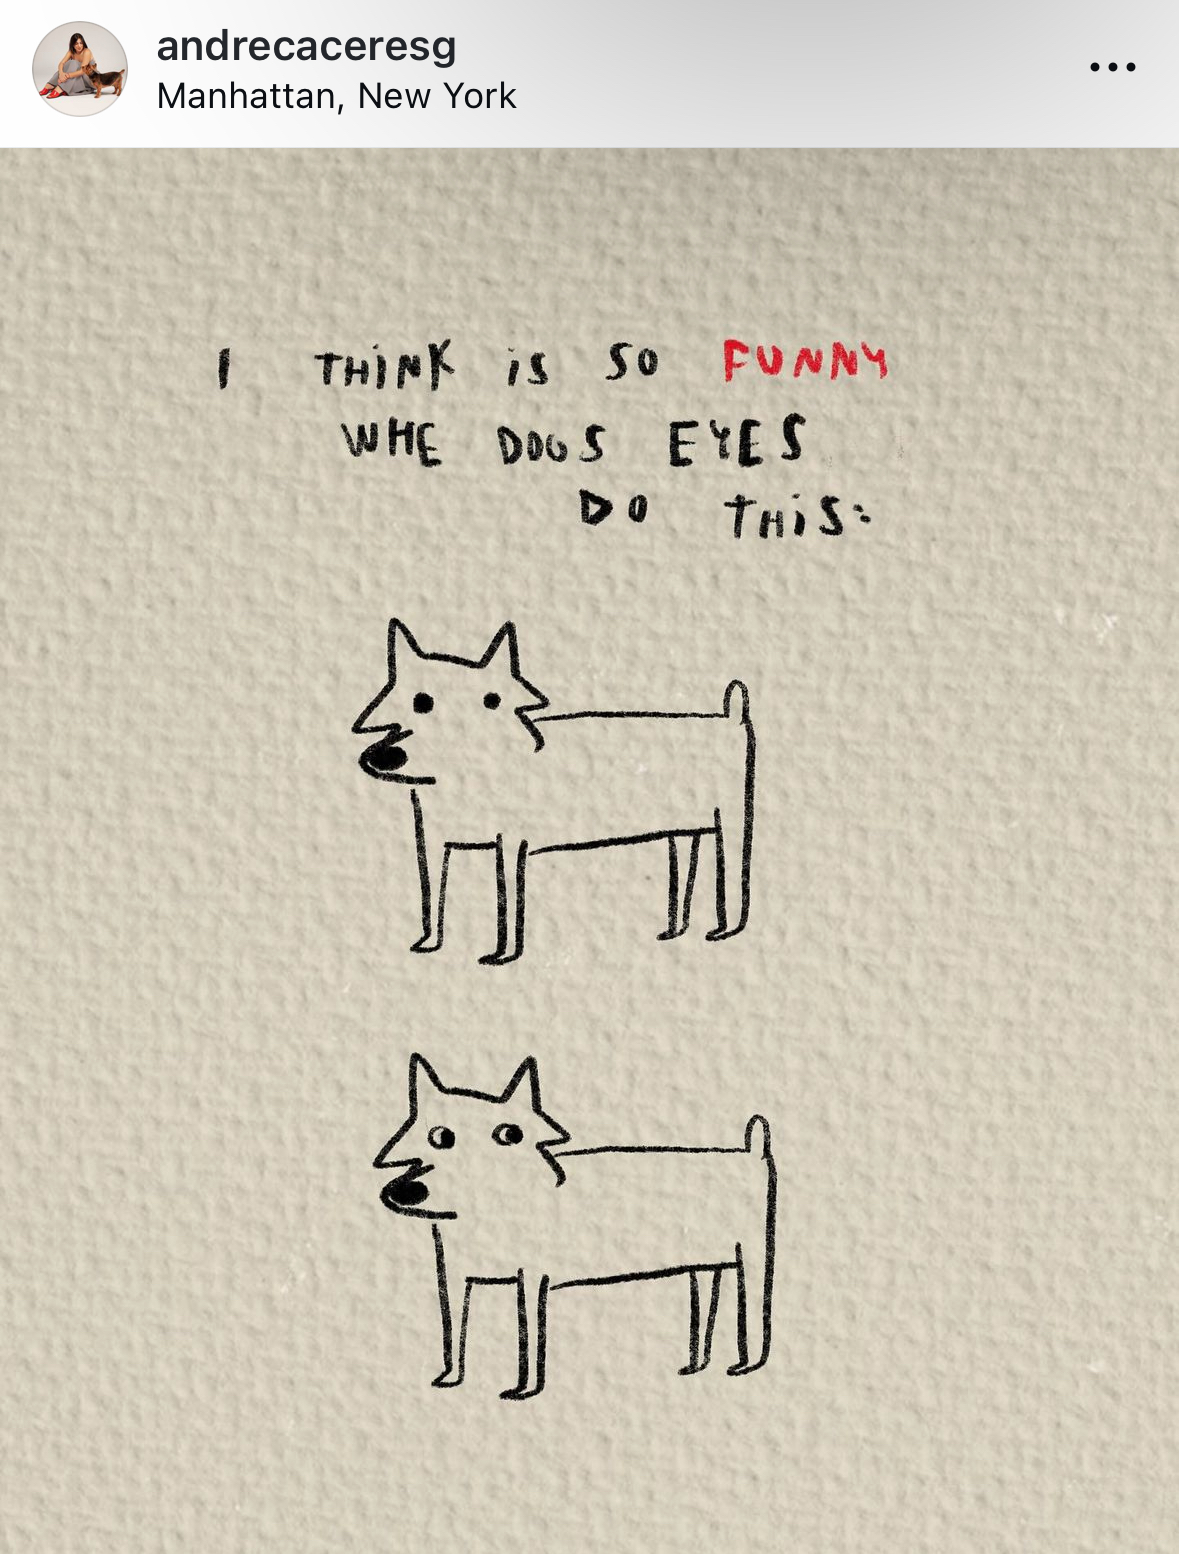 andrecaceresg
Manhattan, New York
I THiNK iS SO FUNNY
WHE DOGS EYES
DO THiS: